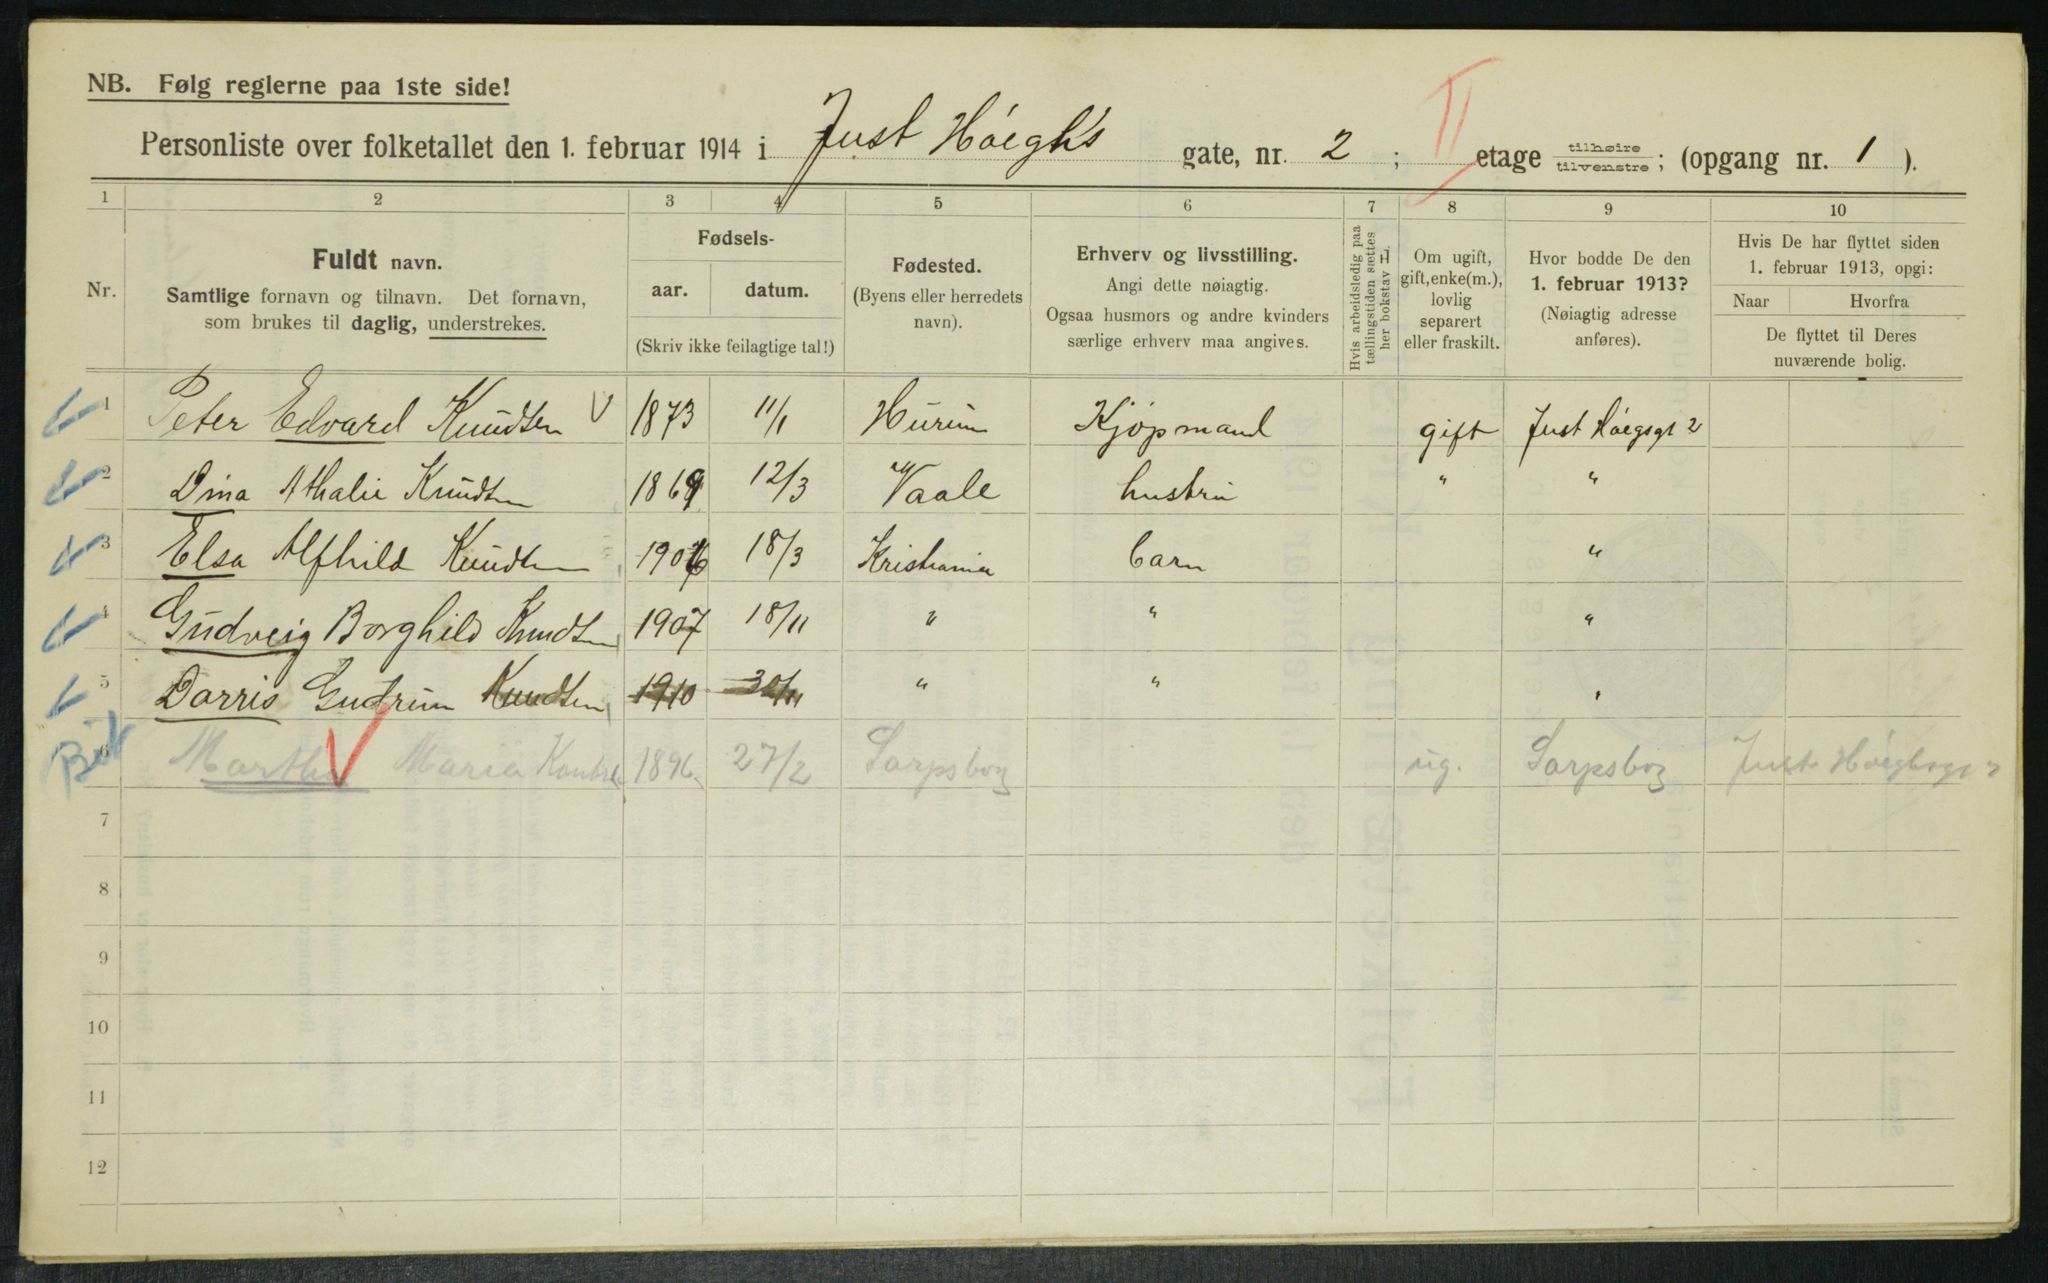 NB. Følg reglerne paa 1ste side!
Personliste over folketallet den 1. februar 1914 i Just Höegh's gate, nr. 2 ; II etage tilhøire tilvenstre ; (opgang nr. 1 ).
1 2 3 4 5 6 7 8 9 10
Nr.
Fuldt navn.
Samtlige fornavn og tilnavn. Det fornavn,
som brukes til daglig, understrekes.
Fødsels-
aar. datum.
(Skriv ikke feilagtige tal!)
Fødested.
(Byens eller herredets
navn).
Erhverv og livsstilling.
Angi dette nøiagtig.
Ogsaa husmors og andre kvinders
særlige erhverv maa angives.
Hvis arbeidsledig paa
tællingstiden sættes
her bokstav L.
Om ugift,
gift, enke(m.),
lovlig
separert
eller fraskilt.
Hvor bodde De den
1. februar 1913?
(Nøiagtig adresse
anføres).
Hvis De har flyttet siden
1. februar 1913, opgi:
Naar Hvorfra
De flyttet til Deres
nuværende bolig.
1 Peter Edvard Knudsen V 1873 11/1 Hurum Kjöpmand gift Just Höegsgt 2
2 Dina Athalie Knudsen 1869 12/3 Vaale hustru " "
3 Elsa Alfhild Knudsen 1906 18/3 Kristiania barn "
4 Gudveig Borghild Knudsen 1907 18/11 " " "
5 Dorris Gudrun Knudsen 1910 30/11 " " "
6 Martha Maria 1896 27/2 Sarpsborg ug. Sarpsborg Just Höeghsgt 2
7
8
9
10
11
12